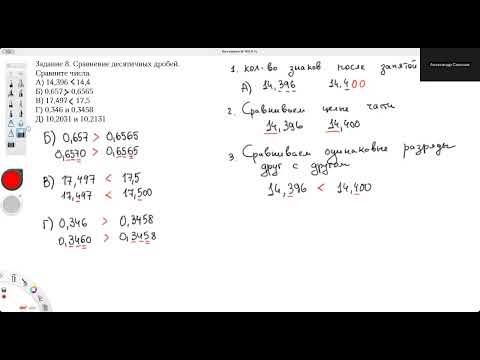 Задание 8. Сравнение десятичных дробей.
Сравните числа.
А) 14,396 < 14,4
Б) 0,657 > 0,6565
В) 17,497 < 17,5
Г) 0,346 и 0,3458
Д) 10,2031 и 10,2131
Б) 0,657 > 0,6565
0,6570 > 0,6565
В) 17,497 < 17,5
17,497 < 17,500
Г) 0,346 > 0,3458
0,3460 > 0,3458
1. кол-во знаков после запятой
А) 14,396 14,400
2. Сравниваем целые части
14,396 14,400
3. Сравниваем одинаковые разряды
друг с другом
14,396 < 14,400